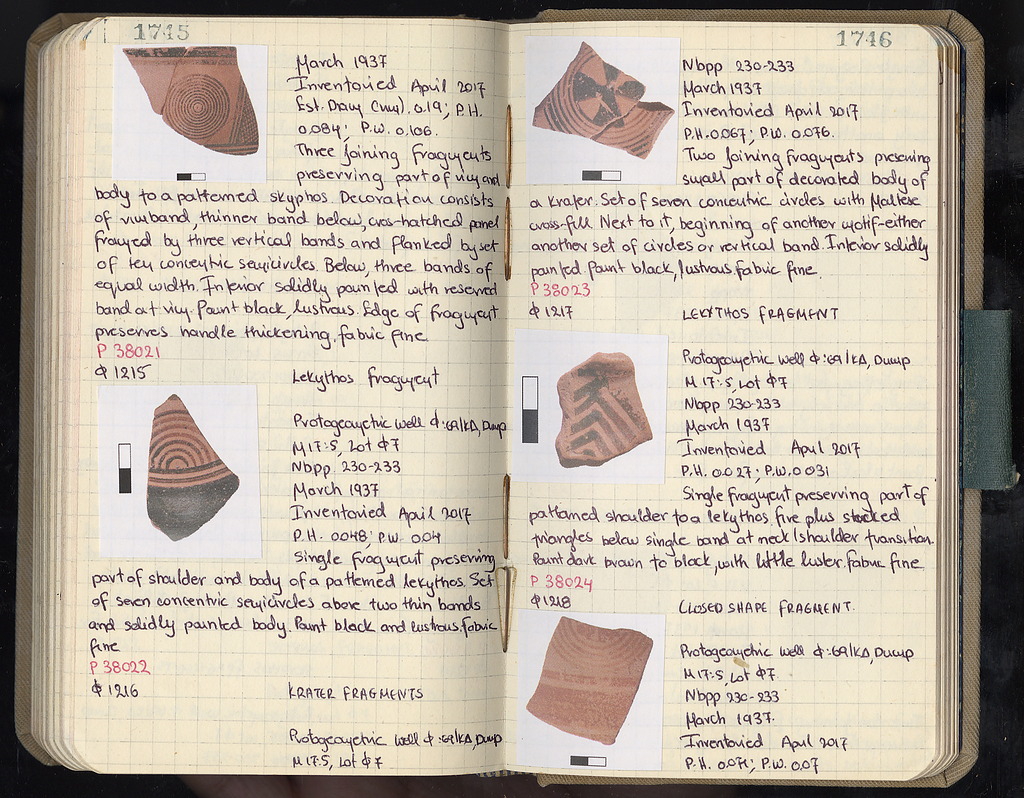 1745
March 1937
Inventoried April 2017
Est. Diam (rim). 0.19; P.H.
0.084; P.W. 0.106.
Three joining fragments
preserving part of rim and
body to a patterned skyphos. Decoration consists
of rimband, thinner band below, cross-hatched panel
framed by three vertical bands and flanked by set
of ten concentric semicircles. Below, three bands of
equal width. Interior solidly painted with reserved
band at rim. Paint black, lustrous. Edge of fragment
preserves handle thickening. fabric fine.
P 38021
Φ 1215
Lekythos fragment
Protogeometric well Φ:69/ΚΔ, Dump
M 17:5, Lot Φ7
Nbpp. 230-233
March 1937
Inventoried April 2017
P.H. 0.048; P.W. 0.04
Single fragment preserving
part of shoulder and body of a patterned lekythos. Set
of seven concentric semicircles above two thin bands
and solidly painted body. Paint black and lustrous. fabric
fine
P 38022
Φ 1216
KRATER FRAGMENTS
Protogeometric well Φ:69/ΚΔ, Dump
M 17:5, Lot Φ7
1746
Nbpp 230-233
March 1937
Inventoried April 2017
P.H. 0.067; P.W. 0.076.
Two joining fragments preserving
small part of decorated body of
a krater. Set of seven concentric circles with Maltese
cross-fill. Next to it, beginning of another motif-either
another set of circles or vertical band. Interior solidly
painted. Paint black, lustrous. fabric fine.
P 38023
Φ 1217
LEKYTHOS FRAGMENT
Protogeometric well Φ:69/ΚΔ, Dump
M 17:5, Lot Φ7
Nbpp 230-233
March 1937
Inventoried April 2017
P.H. 0.027; P.W. 0.031
Single fragment preserving part of
patterned shoulder to a lekythos. five plus stacked
triangles below single band at neck/shoulder transition.
Paint dark brown to black, with little luster. fabric fine
P 38024
Φ 1218
CLOSED SHAPE FRAGMENT.
Protogeometric well Φ:69/ΚΔ, Dump
M 17:5, Lot Φ7
Nbpp 230-233
March 1937.
Inventoried April 2017
P.H. 0.071; P.W. 0.07